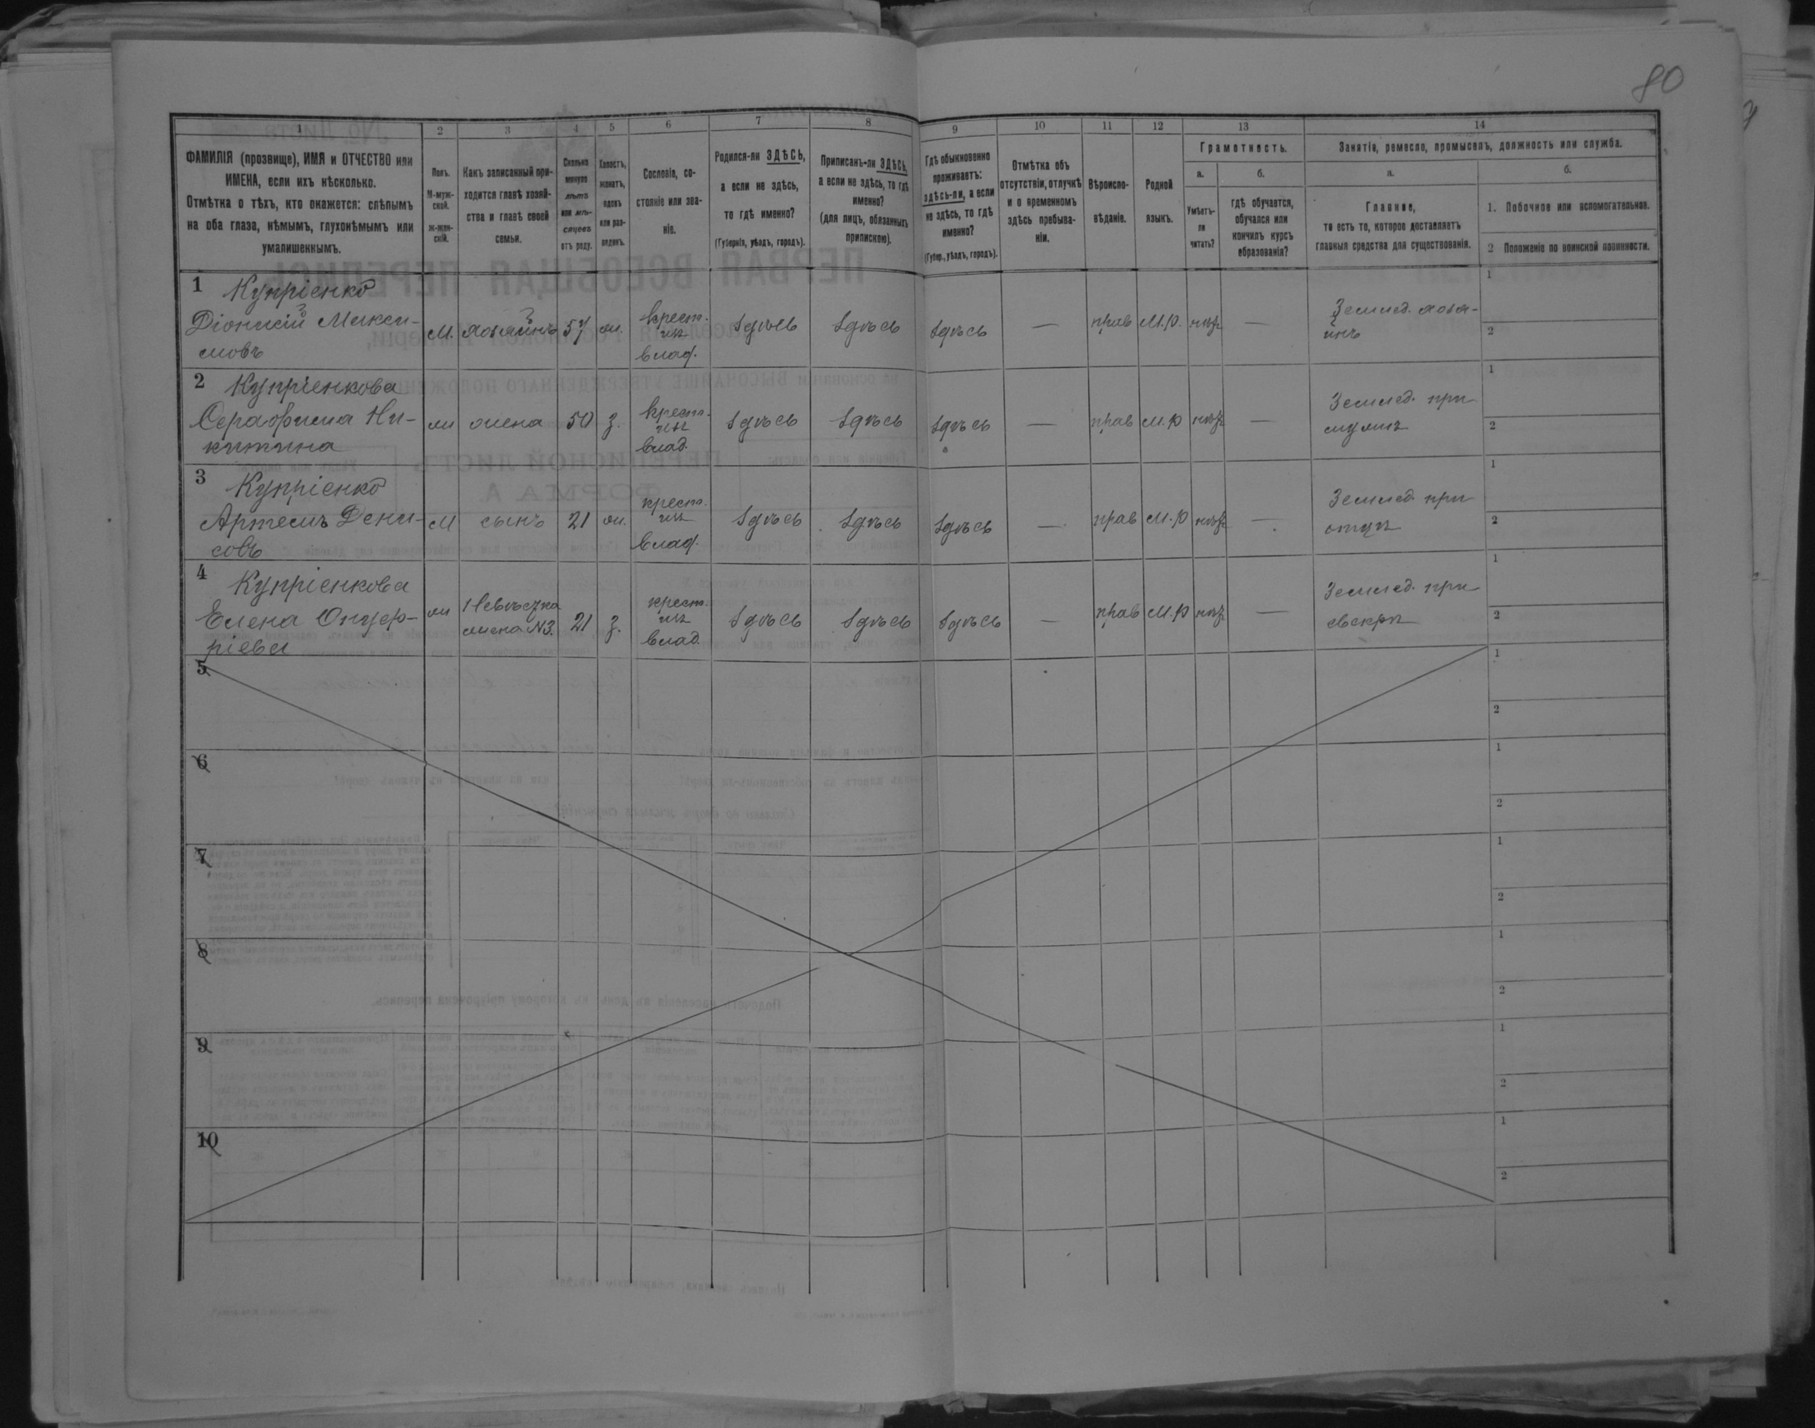 80
1 2 3 4 5 6 7 8 9 10 11 12 13 14
ФАМИЛІЯ (прозвище), ИМЯ и ОТЧЕСТВО или ИМЕНА, если ихъ нѣсколько.
Отмѣтка о тѣхъ, кто окажется: слѣпымъ на оба глаза, нѣмымъ, глухонѣмымъ или умалишеннымъ.
Полъ. М-муж-ской. ж-жен-скій.
Какъ записанный при-ходится главѣ хозяй-ства и главѣ своей семьи.
Сколько минуло лѣтъ или мѣ-сяцевъ отъ роду.
Холостъ, женатъ, вдовъ или раз-веденъ.
Сословіе, со-стояніе или зва-ніе.
Родился-ли ЗДѢСЬ, а если не здѣсь, то гдѣ именно? (Губернія, уѣздъ, городъ).
Приписанъ-ли ЗДѢСЬ, а если не здѣсь, то гдѣ именно? (для лицъ, обязанныхъ припискою).
Гдѣ обыкновенно проживаетъ: здѣсь-ли, а если не здѣсь, то гдѣ именно? (Губер., уѣздъ, городъ).
Отмѣтка объ отсутствіи, отлучкѣ и о временномъ здѣсь пребыва-ніи.
Вѣроиспо-вѣданіе.
Родной языкъ.
Грамотность.
а. Умѣетъ-ли читать?
б. гдѣ обучается, обучался или кончилъ курсъ образованія?
Занятіе, ремесло, промыселъ, должность или служба.
а. Главное, то есть то, которое доставляетъ главныя средства для существованія.
б.
1. Побочное или вспомогательное.
2 Положеніе по воинской повинности.
1 Купріенко
Діонисій Макси-
мовъ
М. хозяинъ 57 ж. крест. изъ влад. здѣсь здѣсь здѣсь — прав М.р. нѣтъ — Землед. хозя-
инъ
1
2
2 Купріенкова
Серафима Ни-
китина
ж жена 50 з. крест. изъ влад. здѣсь здѣсь здѣсь — прав М.р нѣтъ — Землед. при
мужѣ
1
2
3 Купріенко
Артемъ Дени-
совъ
М сынъ 21 ж. крест. изъ влад. здѣсь здѣсь здѣсь — прав М.р нѣтъ — Землед. при
отцѣ
1
2
4 Купріенкова
Елена Онуф-
ріева
ж Невѣстка жена №3. 21 з. крест. изъ влад. здѣсь здѣсь здѣсь — прав М.р нѣтъ — Землед. при
свекрѣ
1
2
5
1
2
6
1
2
7
1
2
8
1
2
9
1
2
10
1
2